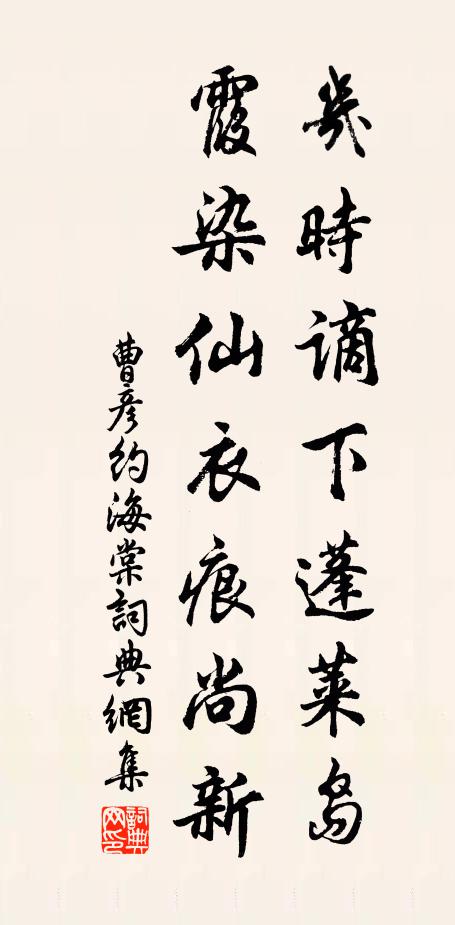 幾時謫下蓬萊島
霞染仙衣痕尚新
曹彥約海棠詞典網集
詞典網印